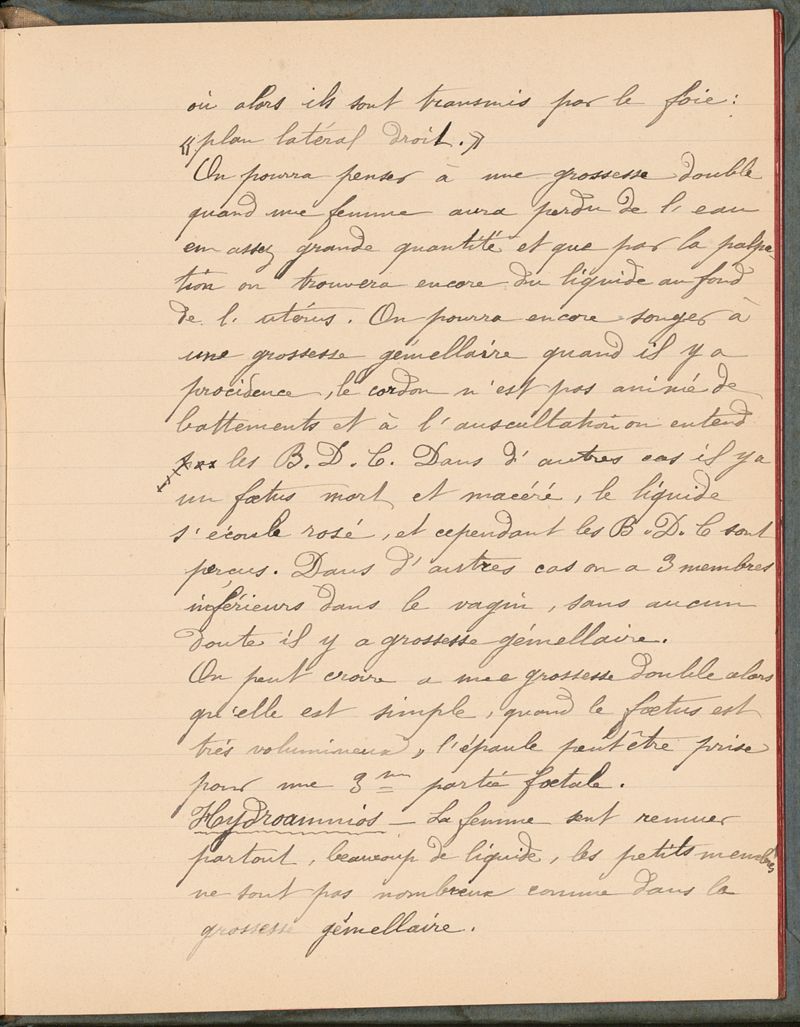 où alors ils sont transmis par le foie :
« plan latéral droit. »
On pourra penser à une grossesse double
quand une femme aura perdu de l'eau
en assez grande quantité et que par la palpa-
tion on trouvera encore du liquide au fond
de l'utérus. On pourra encore songer à
une grossesse gémellaire quand il y a
procidence, le cordon n'est pas animé de
battements et à l'auscultation on entend
les B. D. C. Dans d'autres cas il y a
un fœtus mort et macéré, le liquide
s'écoule rosé, et cependant les B. D. C sont
perçus. Dans d'autres cas on a 3 membres
inférieurs dans le vagin, sans aucun
doute il y a grossesse gémellaire.
On peut croire a une grossesse double alors
qu'elle est simple, quand le fœtus est
très volumineux, l'épaule peut être prise
pour une 3me partie fœtale.
Hydroamnios – La femme sent remuer
partout, beaucoup de liquide, les petits membres
ne sont pas nombreux comme dans la
grossesse gémellaire.